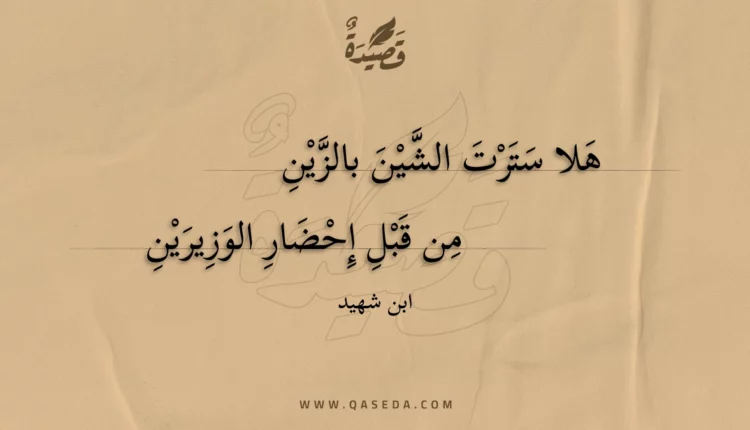 قَصِيدَةٌ
هَلا سَتَرْتَ الشَّيْنَ بالزَّيْنِ
مِن قَبْلِ إِحْضَارِ الوَزِيرَيْنِ
ابن شهيد
WWW.QASEDA.COM